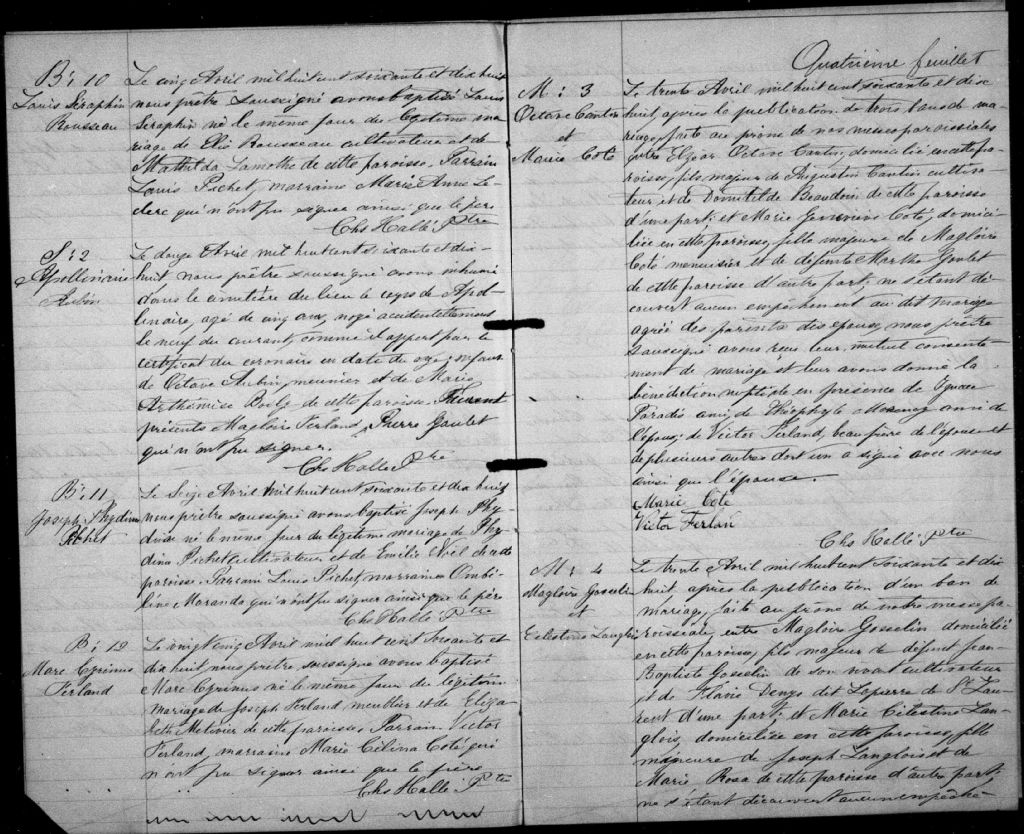 B: 10
Louis Séraphin
Rousseau
Le cinq Avril mil huit cent soixante et dix huit
nous prêtre soussigné avons baptisé Louis
Séraphin né le même jour du légitime ma-
riage de Elie Rousseau cultivateur et de
Mathilda Lamothe de cette paroisse. Parrain
Louis Pichet, marraine Marie Anne Le-
clerc qui n'ont pu signer ainsi que le père
Chs Hallé Ptre
S: 2
Apollinaire
Aubin
Le douze Avril mil huit cent soixante et dix-
huit nous prêtre soussigné avons inhumé
dans le cimetière du lieu le corps de Apol-
linaire, agé de cinq ans, noyé accidentellement
le neuf du courant, comme il appert par le
certificat du coronaire en date de onze; enfant
de Octave Aubin, meunier et de Marie
Arthémise Boily de cette paroisse. Furent
présents Magloire Ferland, Pierre Goulet
qui n'ont pu signer.
Chs Hallé Ptre
B: 11
Joseph Phydime
Pichet
Le Seize Avril mil huit cent soixante et dix huit
nous prêtre soussigné avons baptisé Joseph Phy-
dime né le même jour du légitime mariage de Phy-
dime Pichet cultivateur et de Emilie Noël de cette
paroisse. Parrain Louis Pichet, marraine Ombé-
line Morando qui n'ont pu signer ainsi que le père
Chs Hallé Ptre
B: 12
Marc Cyrinus
Ferland
Le vingt cinq Avril mil huit cent soixante et
dix huit nous prêtre soussigné avons baptisé
Marc Cyrinus né le même jour du légitime
mariage de Joseph Ferland meublier et de Eliza-
beth Metivier de cette paroisse. Parrain Victor
Ferland, marraine Marie Célina Coté qui
n'ont pu signer ainsi que le père
Chs Hallé Ptre
Quatrième feuillet
M: 3
Octave Cantin
et
Marie Coté
Le trente Avril mil huit cent soixante et dix
huit, après la publication de trois bans de ma-
riage, faite au prone de nos messes paroissiales
entre Elzéar Octave Cantin, domicilié en cette pa-
roisse, fils majeur de Augustin Cantin cultiva-
teur et de Domitilde Beaudoin de cette paroisse
d'une part; et Marie Geneviève Coté, domici-
liée en cette paroisse, fille majeure de Magloire
Coté menuisier et de défunte Marthe Goulet
de cette paroisse d'autre part; ne s'étant dé-
couvert aucun empêchement au dit mariage
agréé des parents des epoux, nous prêtre
soussigné avons reçu leur mutuel consente-
ment de mariage et leur avons donné la
bénédiction nuptiale en présence de Ignace
Paradis ami, de Théophyle ami de
l'époux; de Victor Ferland, beau frère de l'épouse et
de plusieurs autres dont un a signé avec nous
ainsi que l'épouse.
Marie Coté
Victor Ferlan
Chs Hallé Ptre
M: 4
Magloire Gosselin
et
Célestine Langlois
Le trente Avril mil huit cent soixante et dix
huit, après la publication d'un ban de
mariage, faite au prone de notre messe pa-
roissiale, entre Magloire Gosselin domicilié
en cette paroisse, fils majeur de défunt Jean
Baptiste Gosselin de son vivant cultivateur
et de Flavie Denys dit Lapierre de St Lau-
rent d'une part; et Marie Célestine Lan-
glois, domiciliée en cette paroisse, fille
mineure de Joseph Langlois et de
Marie Rosa de cette paroisse d'autre part;
ne s'étant découvert aucun empêche-